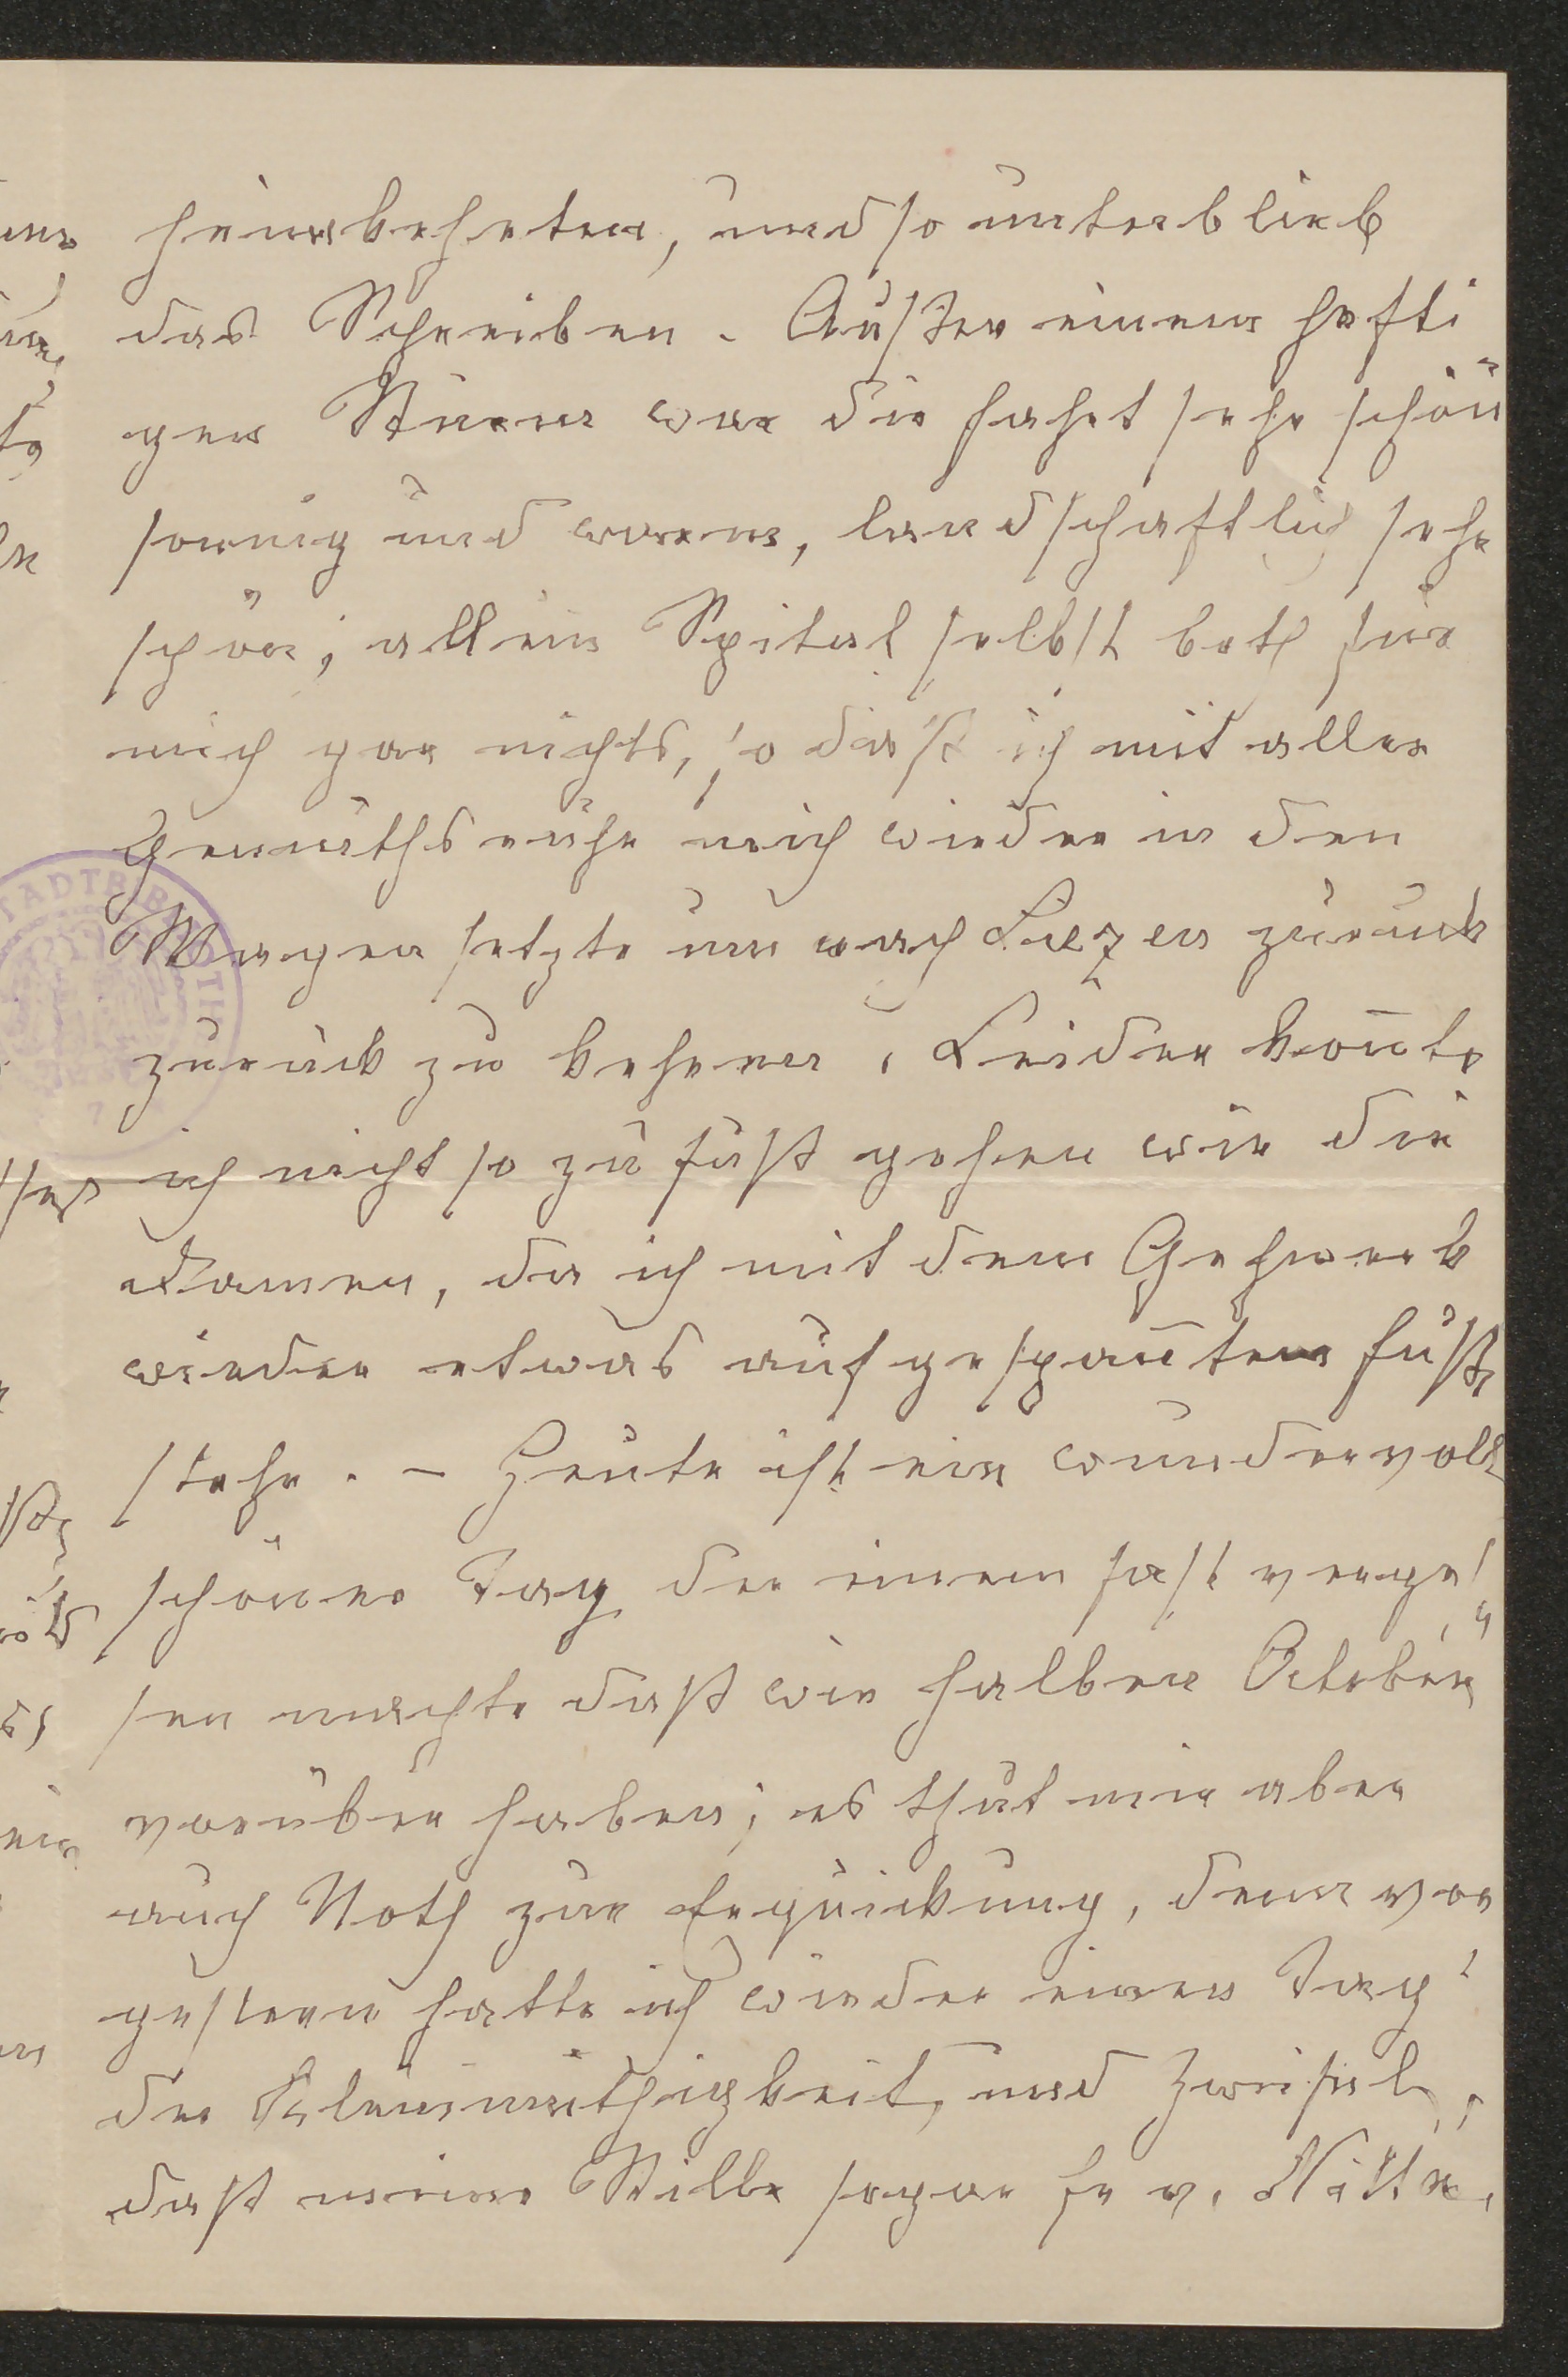 heimkehrten, und so unterblieb
das Schreiben. Außer einem hefti
gen Sturm war die Fahrt sehr schön
sonnig und warm, landschaftlich sehr
schön; allein Spital selbst both für
mich gar nichts, so daß ich mit aller
Gemüthsruhe mich wieder in den
Wagen setzte um nach zurück
zurück zu kehren. Leider kon̄te
ich nicht so zu Fuß gehen wie die
Damen, da ich mit dem Gehwerk
wieder etwas auf gespan̄tem Fuße
stehe. – Heute ist ein wundervoll
schöner Tag der einem fast verges¬
sen machte daß wir halben October
vorüber haben; es thut mir aber
auch Noth zur Erquickung, denn vor
gestern hatte ich wieder einen Tag
der Kleinmüthigkeit, und Zweifel,
daß meine Stille sogar Fr v.
STADTBIBLIOTHEK